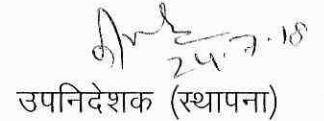 24.7.18
उपनिदेशक (स्थापना)